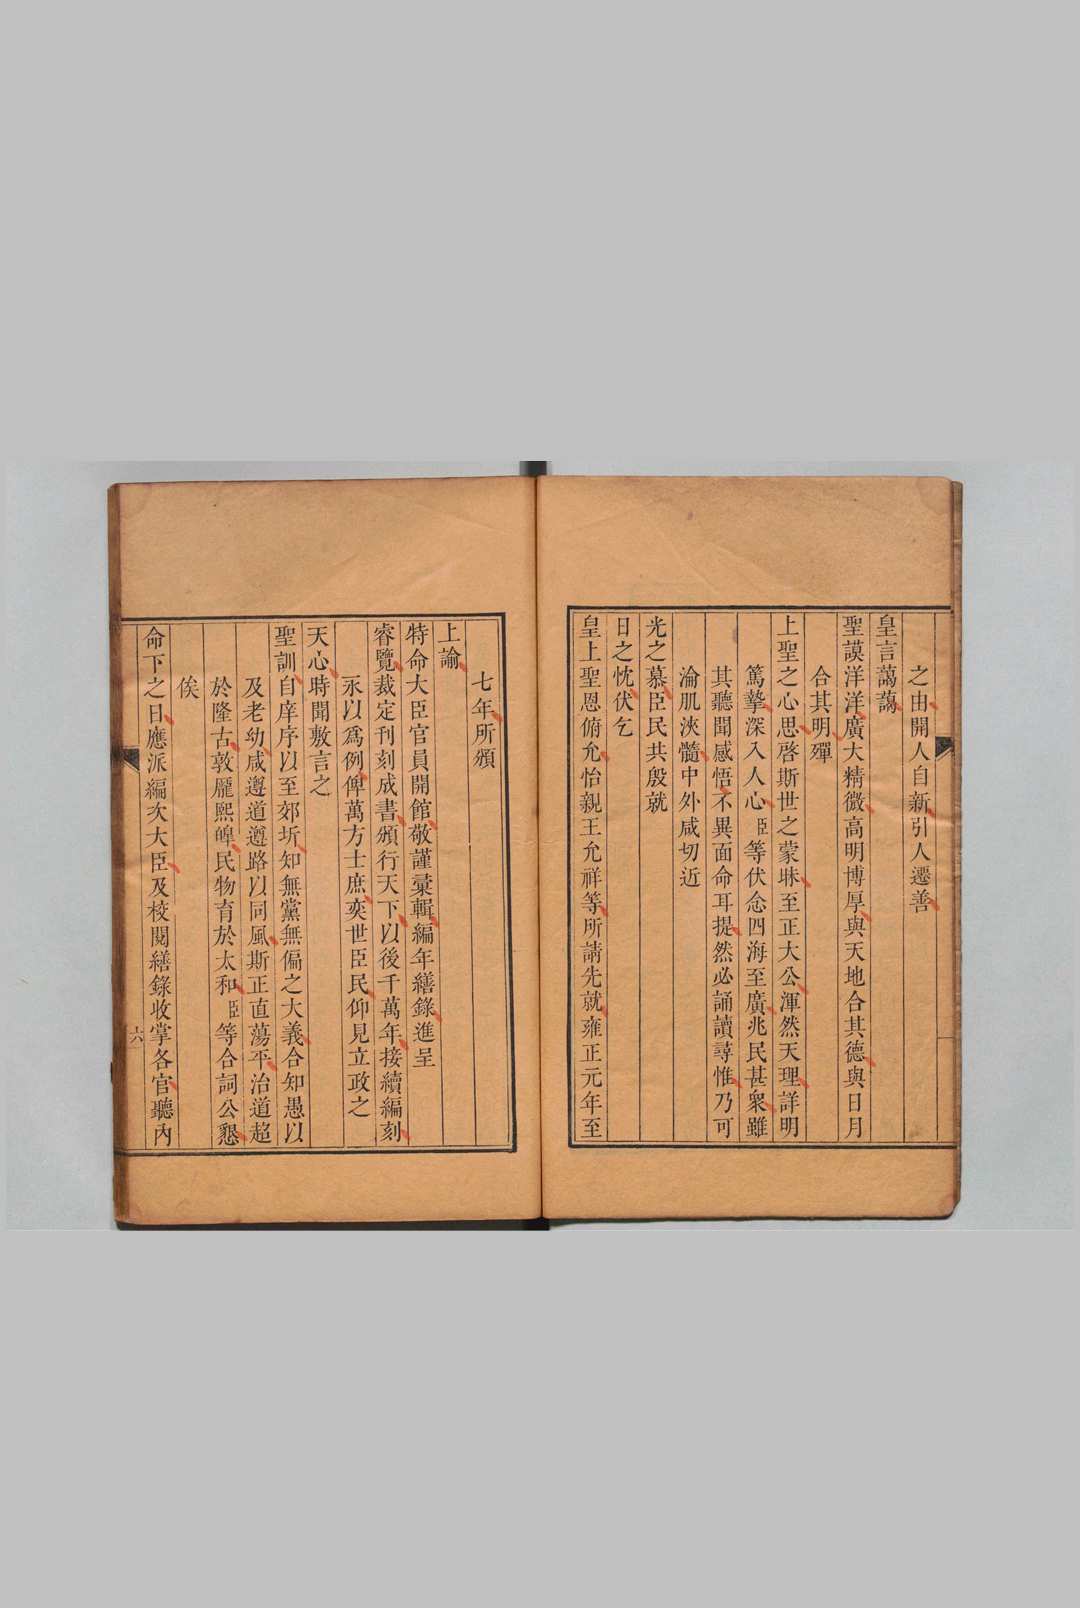 之由開人自新引人遷善
皇言藹藹
聖謨洋洋廣大精微高明博厚與天地合其德與日月
合其明殫
上聖之心思啓斯世之蒙昧至正大公渾然天理詳明
篤摯深入人心臣等伏念四海至廣兆民甚衆雖
其聽聞感悟不異面命耳提然必誦讀尋惟乃可
淪肌浹髓中外咸切近
光之慕臣民共殷就
日之忱伏乞
皇上聖恩俯允怡親王允祥等所請先就雍正元年至
七年所頒
上諭
特命大臣官員開館敬謹彙輯編年繕錄進呈
睿覽裁定刊刻成書頒行天下以後千萬年接續編刻
永以爲例俾萬方士庶奕世臣民仰見立政之
天心時聞敷言之
聖訓自庠序以至郊圻知無黨無偏之大義合知愚以
及老幼咸遵道遵路以同風斯正直蕩平治道超
於隆古敦龐熙皞民物育於太和臣等合詞公懇
俟
命下之日應派編次大臣及校閱繕錄收掌各官聽內
六